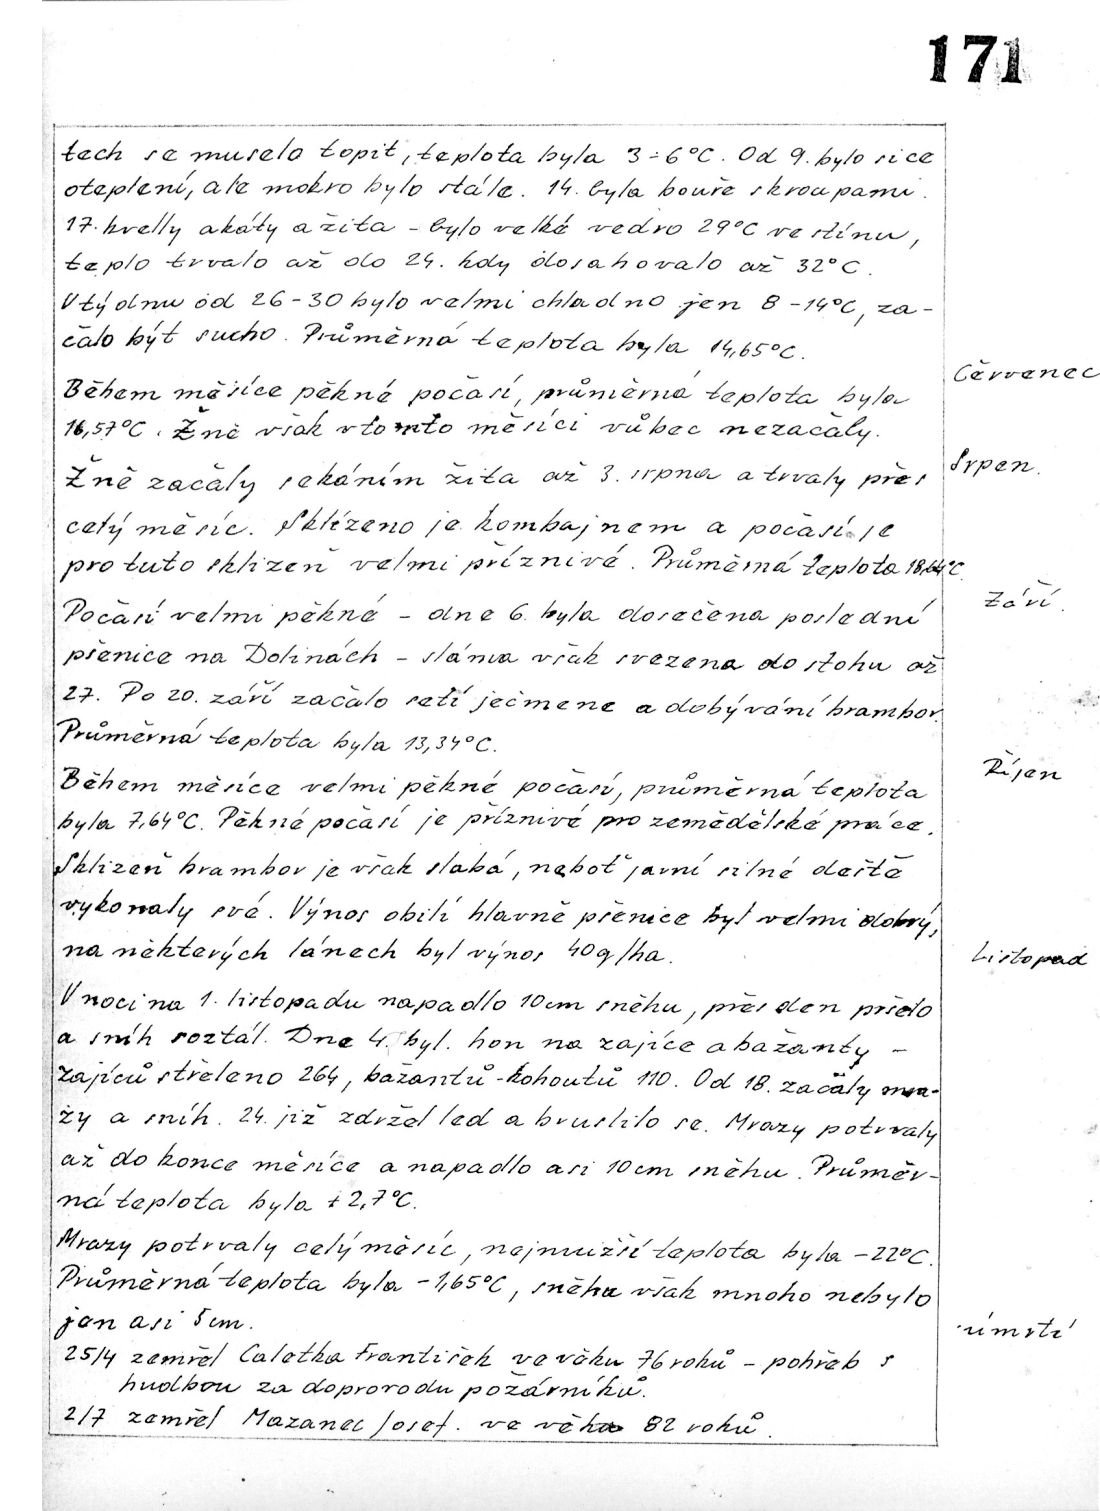 171
tech se muselo topit, teplota byla 3÷6°C. Od 9. bylo sice
oteplení, ale mokro bylo stále. 14. byla bouře s kroupami.
17. kvetly akáty a žita – bylo velké vedro 29°C ve stínu,
teplo trvalo až do 24. kdy dosahovalo až 32°C.
V týdnu od 26–30 bylo velmi chladno jen 8–14°C, za-
čalo být sucho. Průměrná teplota byla 14,65°C.
Červenec
Během měsíce pěkné počasí, průměrná teplota byla
16,57°C. Žně však v tomto měsíci vůbec nezačaly.
Srpen.
Žně začaly sekáním žita až 3. srpna a trvaly přes
celý měsíc. Sklízeno je kombajnem a počasí je
pro tuto sklizeň velmi příznivé. Průměrná teplota 18,64°C
Září.
Počasí velmi pěkné – dne 6. byla dosečena poslední
pšenice na Dolinách – sláma však svezena do stohu až
27. Po 20. září začalo setí ječmene a dobývání brambor.
Průměrná teplota byla 13,34°C.
Říjen
Během měsíce velmi pěkné počasí, průměrná teplota
byla 7,64°C. Pěkné počasí je příznivé pro zemědělské práce.
Sklizeň brambor je však slabá, neboť jarní silné deště
vykonaly své. Výnos obilí hlavně pšenice byl velmi dobrý,
na některých lánech byl výnos 40q/ha.
Listopad
V noci na 1. listopadu napadlo 10cm sněhu, přes den pršelo
a sníh roztál. Dne 4. byl. hon na zajíce a bažanty –
zajíců střeleno 264, bažantů-kohoutů 110. Od 18. začaly mra-
zy a sníh. 24. již zdržel led a bruslilo se. Mrazy potrvaly
až do konce měsíce a napadlo asi 10cm sněhu. Průměr-
ná teplota byla +2,7°C.
Mrazy potrvaly celý měsíc, nejnuižší teplota byla –22°C.
Průměrná teplota byla –1,65°C, sněhu však mnoho nebylo
jen asi 5cm.
úmrtí
25/4 zemřel Caletka František ve věku 76 roků – pohřeb s
hudbou za doprorodu požárníků.
2/7 zemřel Mazanec Josef. ve věku 82 roků.